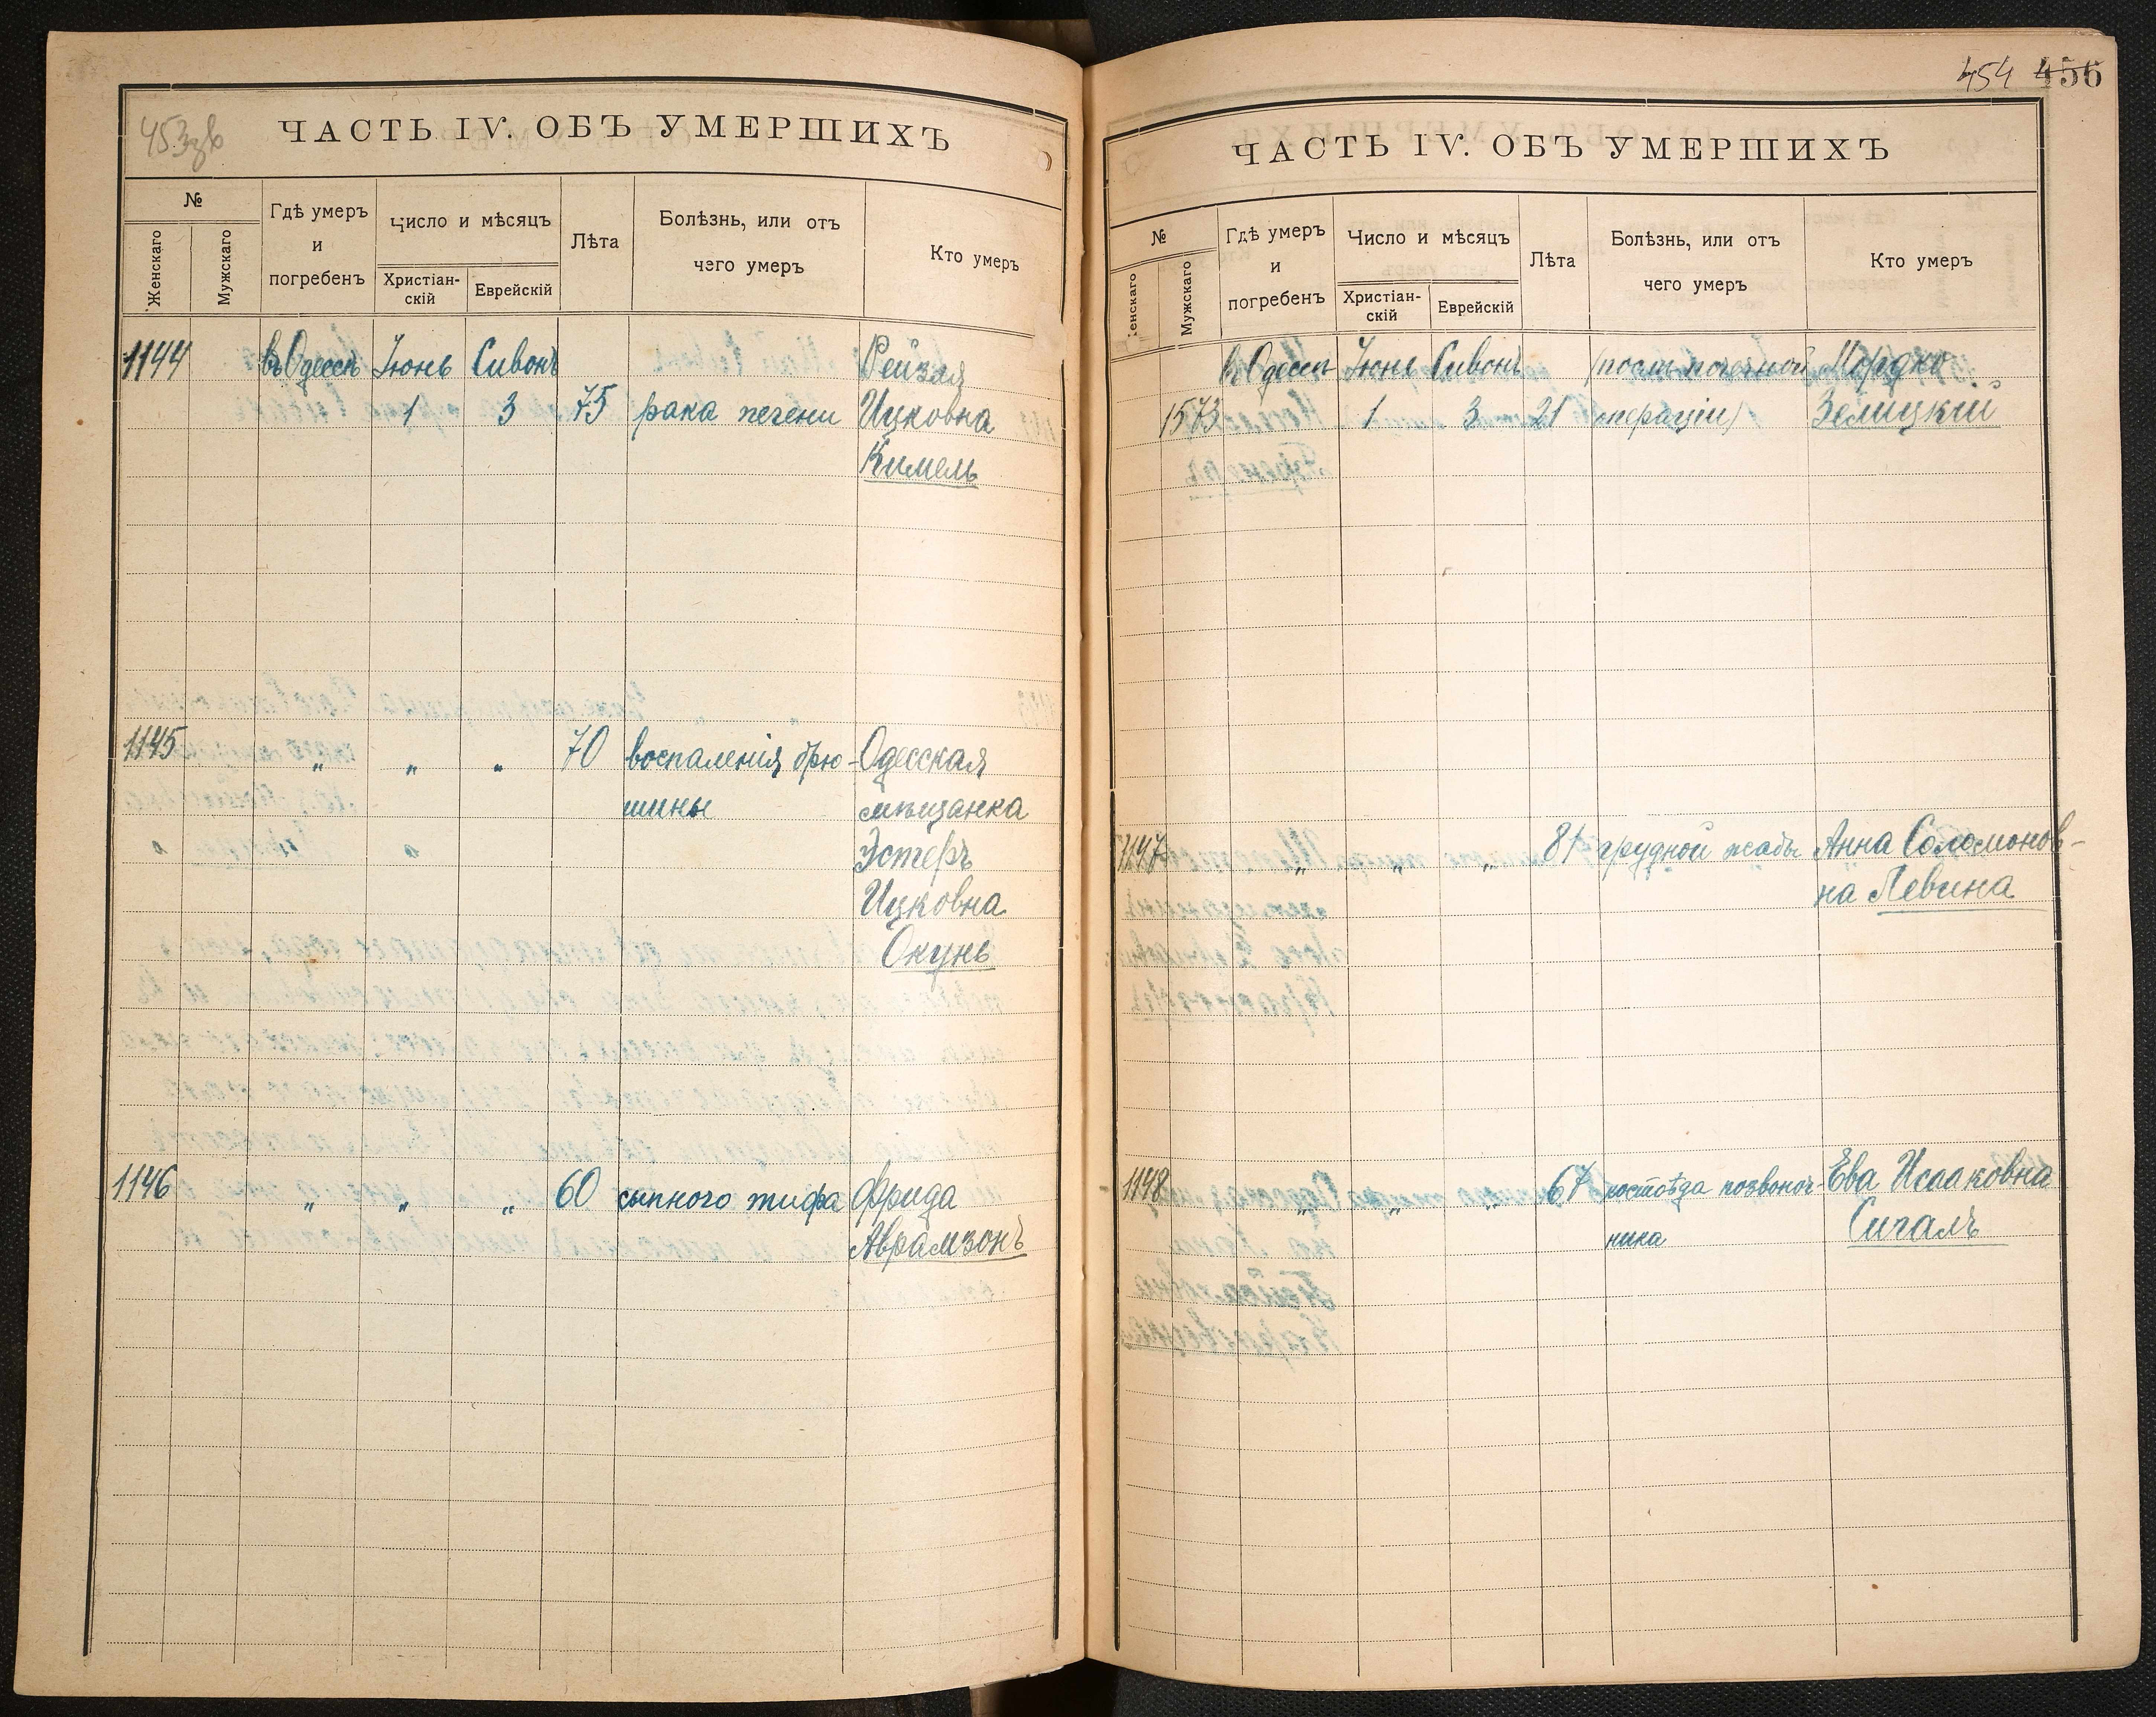 453зв
ЧАСТЬ IV. ОБЪ УМЕРШИХЪ
№
Женскаго
Мужскаго
Гдѣ умеръ
и
погребенъ
Число и мѣсяцъ
Христіан-
скій
Еврейскій
Лѣта
Болѣзнь, или отъ
чего умеръ
Кто умеръ
1144 въ Одессѣ Іюнь Сивонъ Рейзля
1 3 75 рака печени Ицковна
Кимель
1145 „ „ „ 70 воспаленія брю- Одесская
шины мѣщанка
Эстеръ
Ицковна
Окунь
1146 „ „ „ 60 сыпного тифа Фрида
Аврамзонъ
454 456
ЧАСТЬ IV. ОБЪ УМЕРШИХЪ
№
Женскаго
Мужскаго
Гдѣ умеръ
и
погребенъ
Число и мѣсяцъ
Христіан-
скій
Еврейскій
Лѣта
Болѣзнь, или отъ
чего умеръ
Кто умеръ
въ Одессѣ Іюнь Сивонъ (послѣ почечной Мордко
1573 1 3 21 операціи) Зелицкій
1147 „ „ „ 81 грудной жабы Анна Соломонов-
на Левина
1148 „ „ „ 67 костоѣда позвоноч- Ева Исааковна
ника Сигалъ